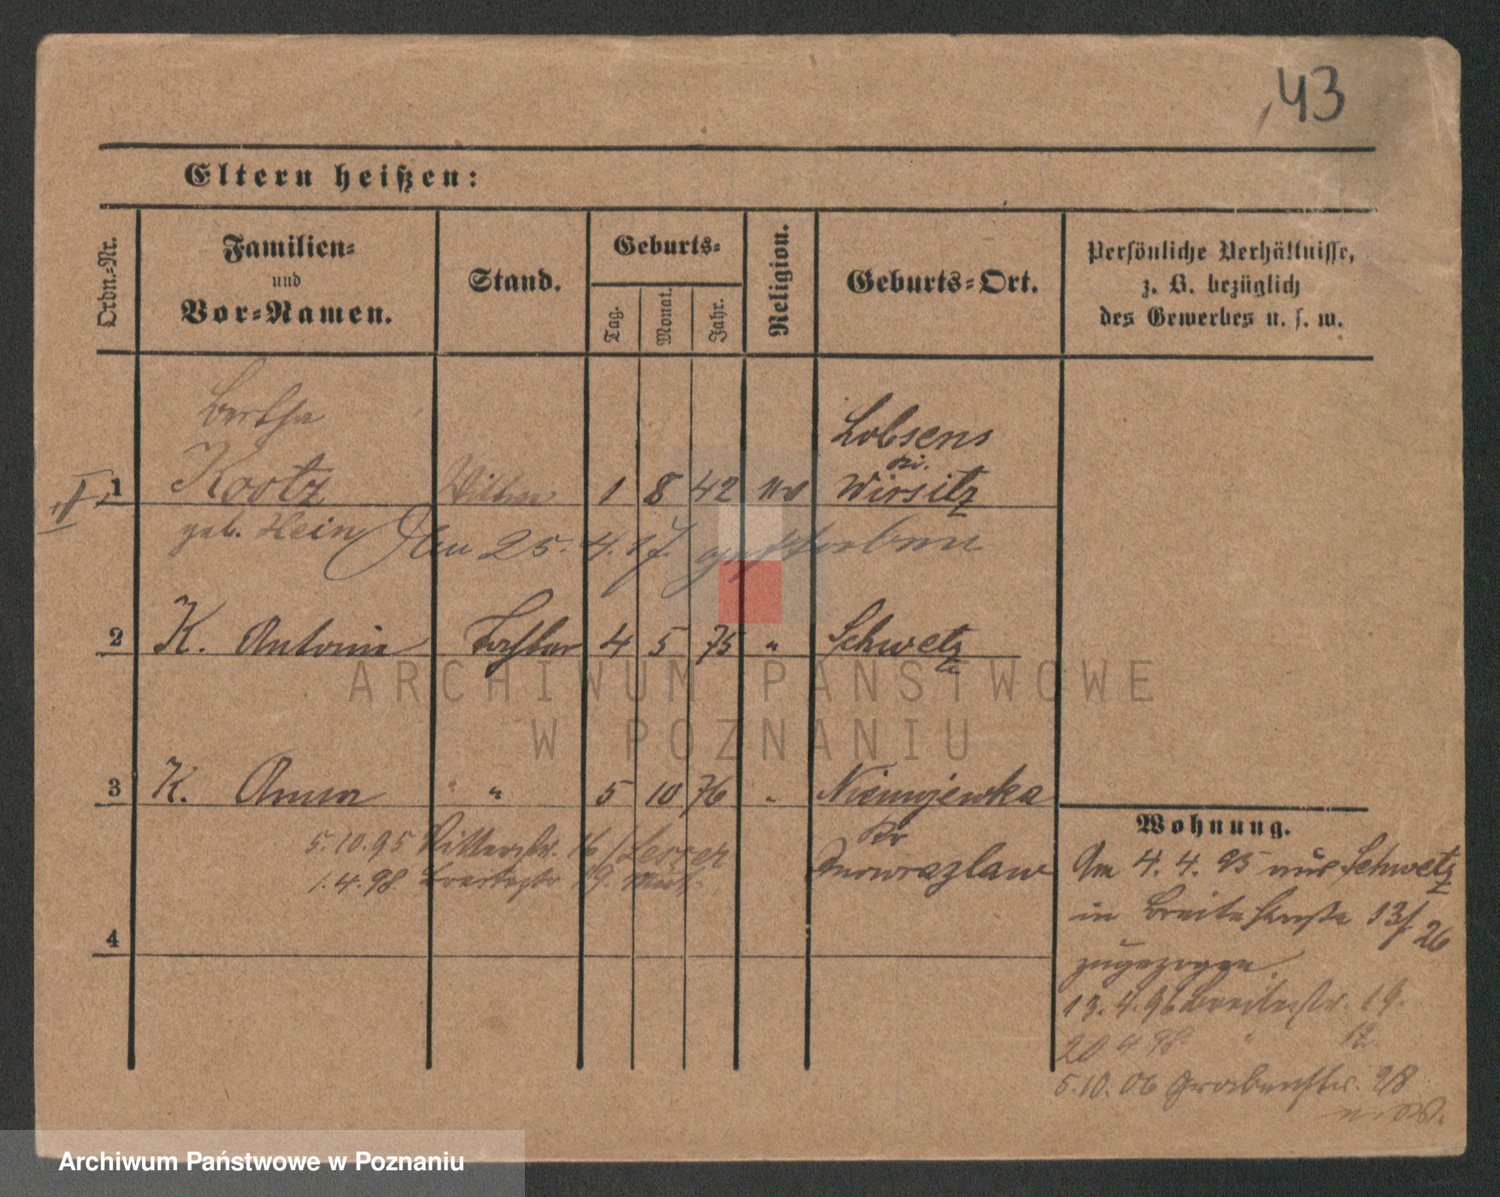 43
Eltern heißen:
Ordn.-Nr.
Familien-
und
Vor-Namen.
Stand.
Geburts-
Tag.
Monat.
Jahr.
Religion.
Geburts-Ort.
Persönliche Verhältnisse,
z. B. bezüglich
des Gewerbes u. s. w.
Bertha
Lobsens
Kr.
1 Kootz 1 8 42 Wirsitz
geb. Hein Am 25. 4. 17. gestorben
2 K. Antonie Tochter 4 5 75 " Schwetz
3 K. Anna " 5 10 76 " Niemojewka
Kr
Inowrazlaw
5.10.95 Ritterstr. 16 / Lesser
1.4.98. Breitestr. 19.
4
Wohnung.
Am 4. 4. 95 aus Schwetz
in Breitestraße 13/26
zugezogen.
13. 4. 96 Breitestr. 19.
20 4 98. "
5.10. 06 Grabenstr. 28
ARCHIWUM PAŃSTWOWE
W POZNANIU
Archiwum Państwowe w Poznaniu